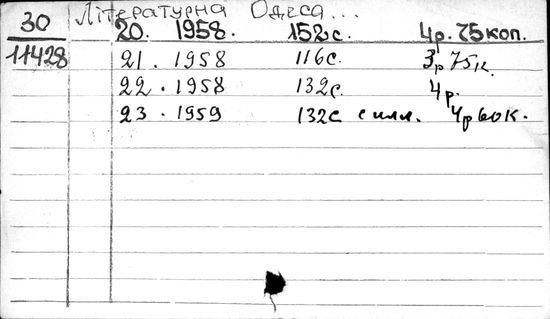 30 Література Одеса...
20. 1958. 152с. 4р. 75коп.
11428 21. 1958 116с. 3р 75к.
22. 1958 132с. 4р.
23. 1959 132с с илл. 4р 60к.